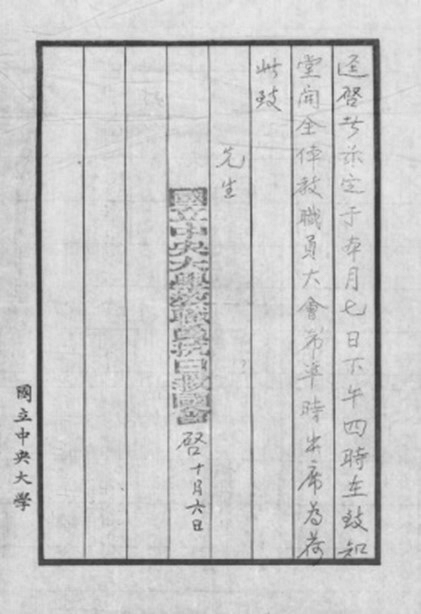 逕啓者茲定于本月七日下午四時在致知
堂開全体教職員大會希準時出席為荷
此致
先生
國立中央大學教職員抗日救國會
啓十月六日
國立中央大学